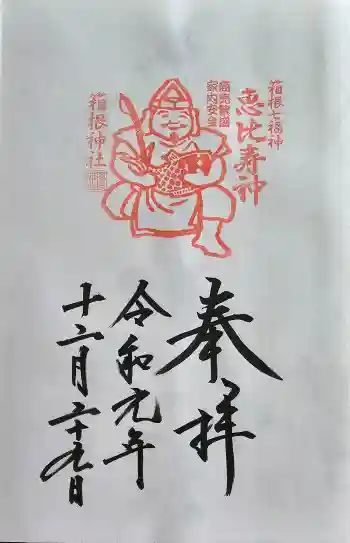 箱根七福神
恵比寿神
商売繁昌
家内安全
箱根神社
奉拝
令和元年
十二月二十九日